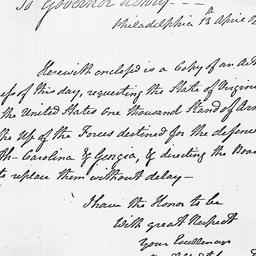 To Governor Henry
Philadelphia 13th April
Herewith enclosed is a Copy of an Act
of this day, requesting the State of Virginia
the United States one Thousand Stand of Ar
the Use of the Forces destined for the defence
th-Carolina & Georgia, & directing the Boar
to replace them without delay—
I have the Honor to be
With great Respect
Your Excellencys